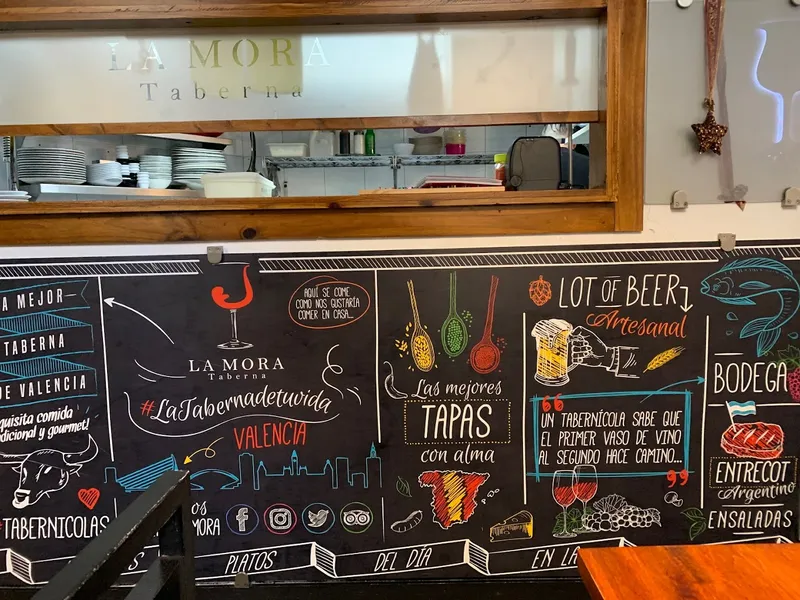 LA MORA
Taberna
A MEJOR
TABERNA
DE VALENCIA
quisita comida
dicional y gourmet!
#TABERNICOLAS
AQUÍ SE COME
COMO NOS GUSTARÍA
COMER EN CASA...
LA MORA
Taberna
#LaTabernadetuvida
VALENCIA
os
MORA
Las mejores
TAPAS
con alma
LOT OF BEER
Artesanal
UN TABERNÍCOLA SABE QUE
EL PRIMER VASO DE VINO
AL SEGUNDO HACE CAMINO...
BODEGA
ENTRECOT
Argentino
ENSALADAS
PLATOS DEL DÍA EN LA